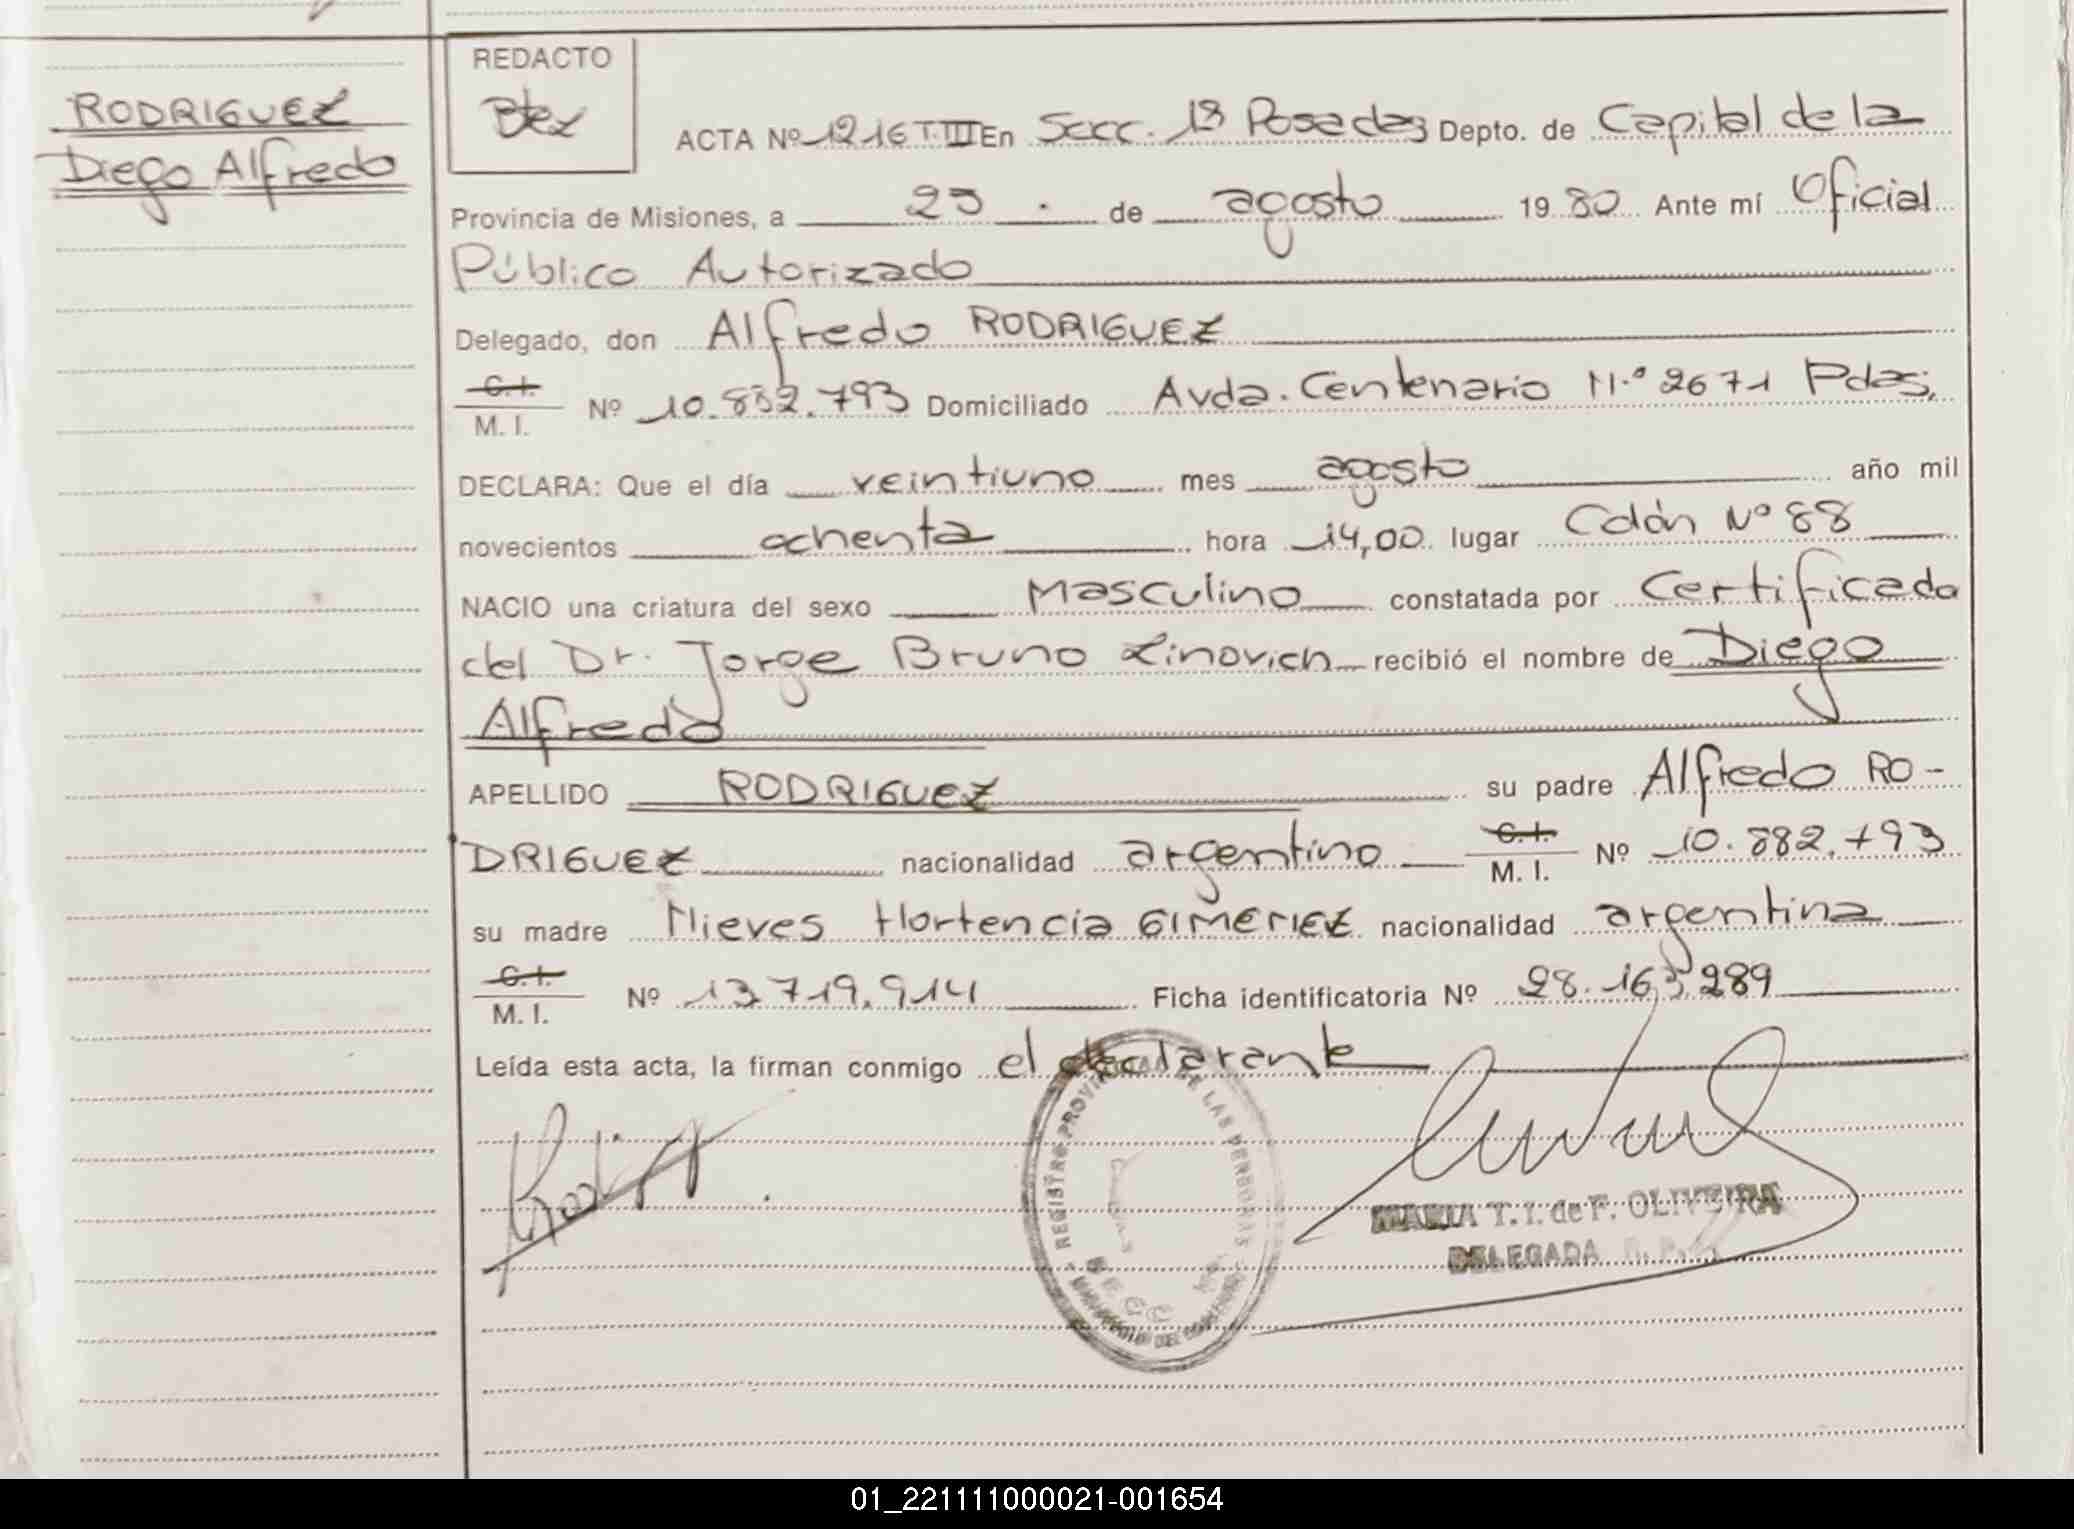 RODRIGUEZ
Diego Alfredo
REDACTO
ACTA Nº 1216 T.III En Secc. 1ª Posadas Depto. de Capital de la
Provincia de Misiones, a 29 de agosto 1980 Ante mí Oficial
Público Autorizado
Delegado, don Alfredo RODRIGUEZ
C.I.
M. I. Nº 10.882.793 Domiciliado Avda. Centenario N.º 2671 Pdas,
DECLARA: Que el día veintiuno mes agosto año mil
novecientos ochenta hora 14,00 lugar Colón Nº 88
NACIO una criatura del sexo Masculino constatada por Certificado
del Dr. Jorge Bruno Zinovich recibió el nombre de Diego
Alfredo
APELLIDO RODRIGUEZ su padre Alfredo RO-
DRIGUEZ nacionalidad argentino C.I. M. I. Nº 10.882.793
su madre Nieves Hortencia GIMENEZ nacionalidad argentina
C.I.
M. I. Nº 13.719.914 Ficha identificatoria Nº 28.163.289
Leída esta acta, la firman conmigo el declarante
REGISTRO PROVINCIAL DE LAS PERSONAS
MARIA T. I. de F. OLIVEIRA
DELEGADA R. P. P.
01_221111000021-001654